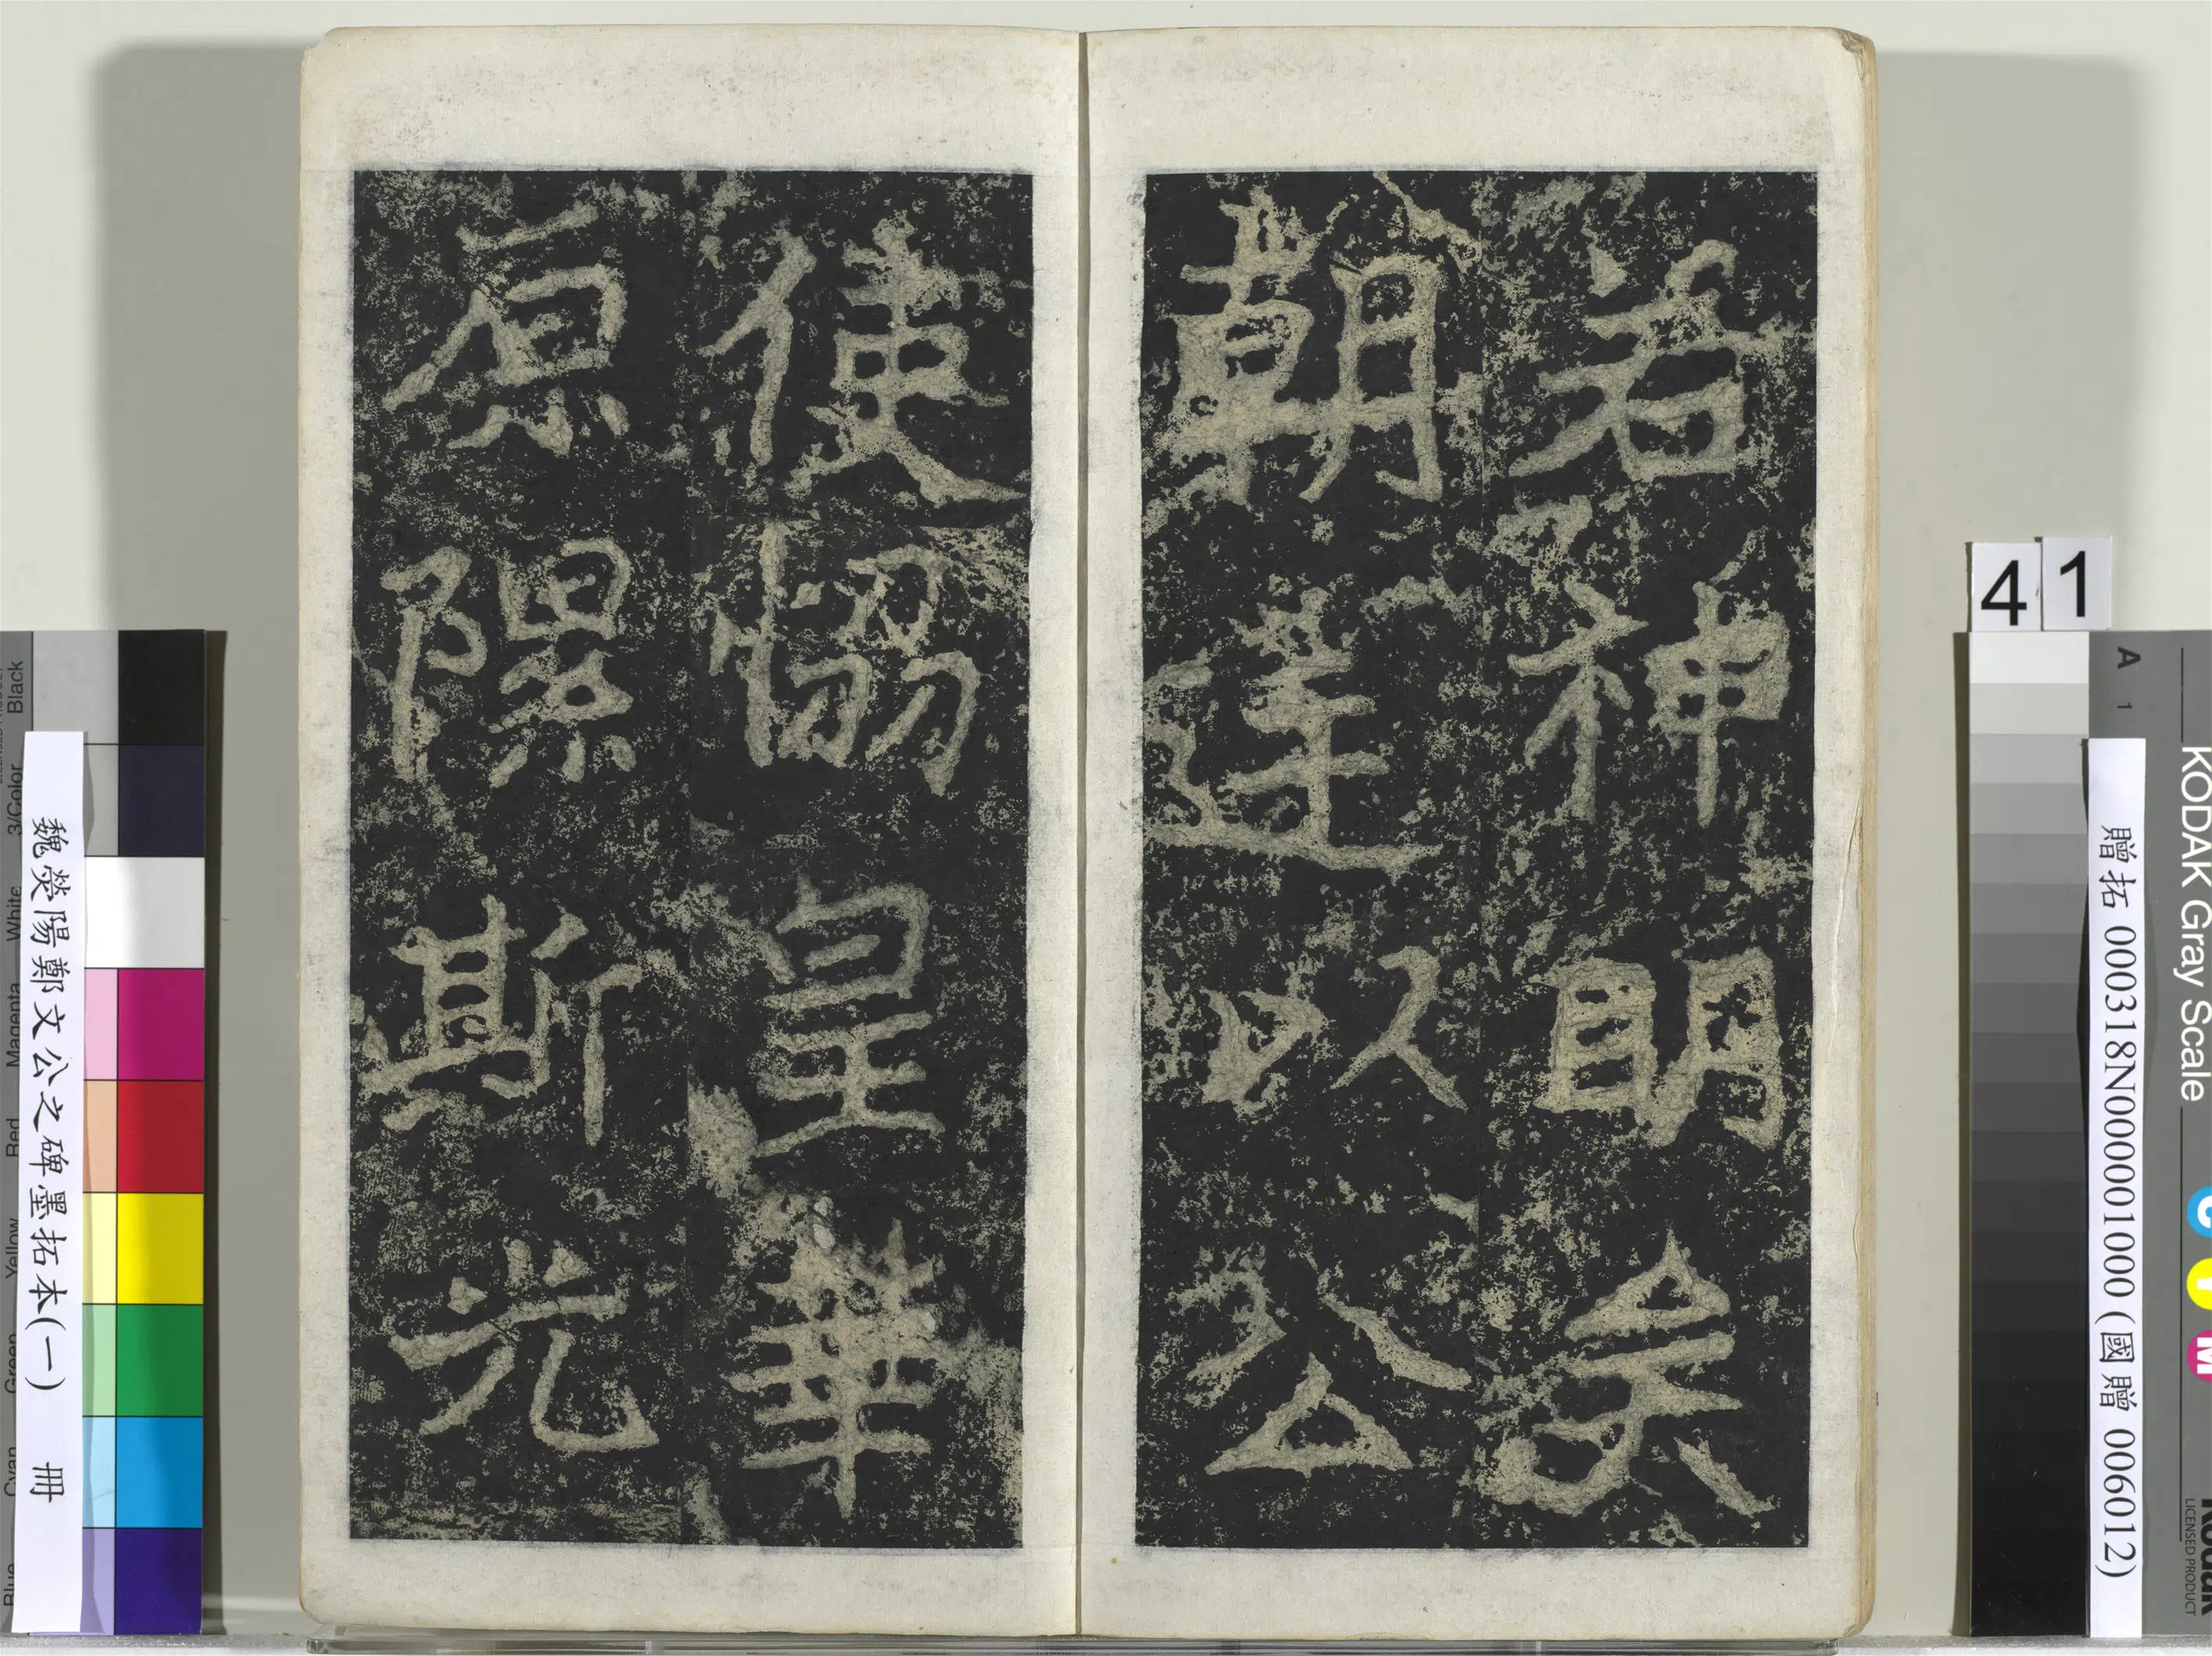 若神明矣
朝達以公
使恊皇華
原隰斯光
41
贈拓 000318N000001000 (國贈 006012)
魏滎陽鄭文公之碑墨拓本(一) 冊
KODAK Gray Scale
A 1
C Y M
Kodak
LICENSED PRODUCT
Black
3/Color
White
Magenta
Red
Yellow
Green
Cyan
Blue